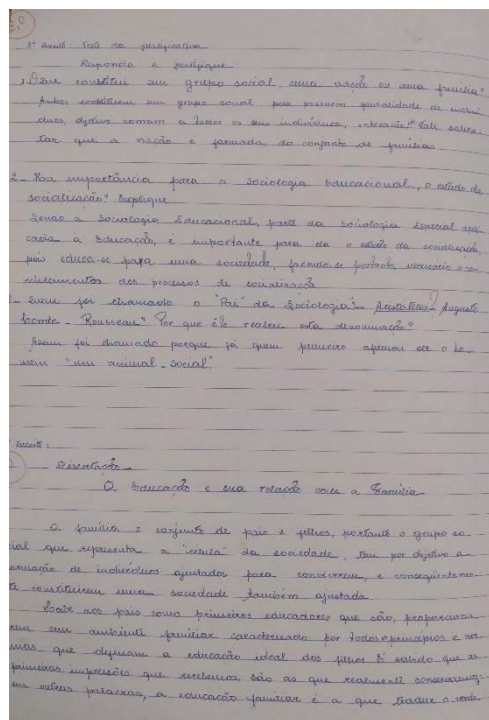 1º Quesito Teste de justificativa
Responda e justifique
1) Que constitui um grupo social, uma nação ou uma família?
Ambas constituem um grupo social, pois possuem pluralidade de indiví-
duos, objetivo comum a todos os seus indivíduos, interação. Vale salien-
tar que a nação é formada do conjunto de famílias
2_ Há importância para a Sociologia Educacional, o estudo da
socialização? Explique
Sendo a Sociologia Educacional, parte da Sociologia Especial apli-
cada a Educação, é importante para ela o estudo da socialização,
pois educa-se para uma sociedade, fazendo-se portanto, necessário o co-
nhecimentos dos processos de socialização
3_ Quem foi chamado o "Pai" da Sociologia? _ Aristóteles _ Augusto
Comte _ Rousseau? Por que êle recebeu esta denominação?
Assim foi chamado porque foi quem primeiro afirmou ser o ho-
mem "um animal social"
Quesito:
_ Dissertação _
A Educação e sua relação com a Família
A família é conjunto de pais e filhos, portanto o grupo so-
cial que representa a "célula" da sociedade, tem por objetivo a
formação de indivíduos ajustados para conviverem, e conseqüentemen-
te constituirem uma sociedade também ajustada.
Cabe aos pais como primeiros educadores que são, proporciona-
rem um ambiente familiar caracterizado por todos princípios e nor-
mas que definam a educação ideal dos filhos É sabido que as
primeiras impressões que recebemos são as que realmente conservamos;
em outras palavras, a educação familiar é a que traduz o